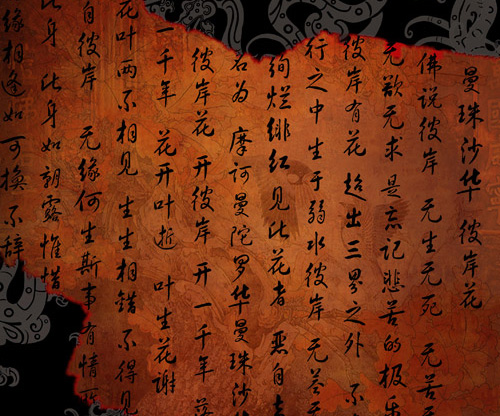 曼珠沙华 彼岸花
佛说彼岸 无生无死 无苦
无欲无求 是忘记悲苦的极乐
彼岸有花 超出三界之外 不
行之中 生于弱水彼岸 无茎无
绚烂绯红 见此花者 恶自去
名为 摩诃曼陀罗华曼珠沙华
彼岸花 开彼岸 开一千年 落
一千年 花开叶逝 叶生花谢
花叶两不相见 生生相错 不得见
自彼岸 无缘何生斯事 有情所
此身 此身如朝露 惟惜
缘相逢如可换 不辞